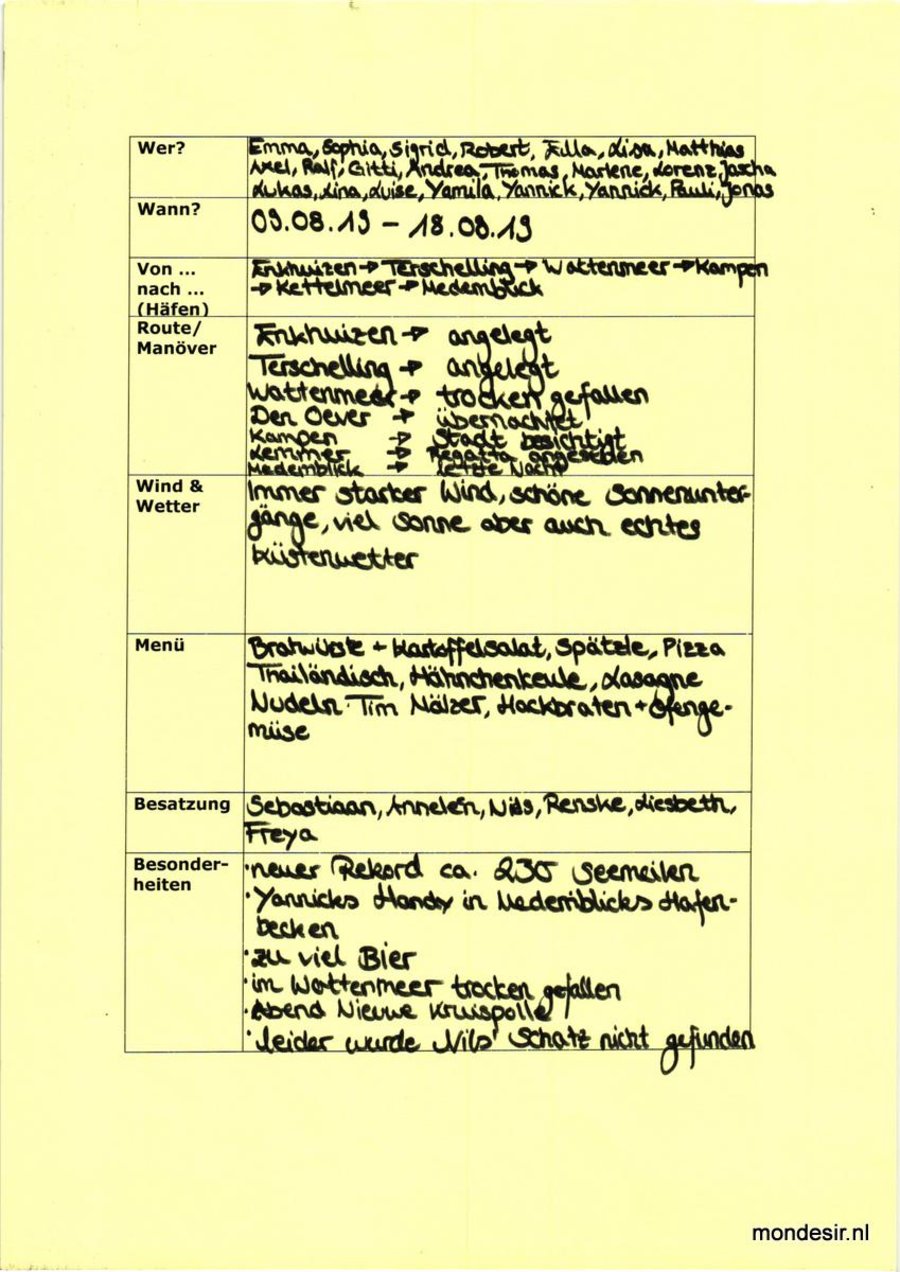 Wer?
Emma, Sophia, Sigrid, Robert, Zilla, Lisa, Matthias
Axel, Ralf, Gitti, Andrea, Thomas, Marlene, Lorenz, Jascha
Lukas, Lina, Luise, Yamila, Yannick, Yannick, Pauli, Jonas
Wann?
09.08.19 – 18.08.19
Von ...
nach ...
(Häfen)
Enkhuizen → Terschelling → Wattenmeer → Kampen
→ Kettelmeer → Medemblick
Route/
Manöver
Enkhuizen → angelegt
Terschelling → angelegt
Wattenmeer → trocken gefallen
Den Oever → übernachtet
Kampen → Stadt besichtigt
Lemmer → Regatta angesehen
Medemblick → letzte Nacht
Wind &
Wetter
Immer starker Wind, schöne Sonnenunter-
gänge, viel Sonne aber auch echtes
Küstenwetter
Menü
Bratwürste + Kartoffelsalat, Spätzle, Pizza
Thailändisch, Hähnchenkeule, Lasagne
Nudeln Tim Mälzer, Hackbraten + Ofenge-
müse
Besatzung
Sebastiaan, Annelen, Nils, Renske, Liesbeth,
Freya
Besonder-
heiten
· neuer Rekord ca. 230 Seemeilen
· Yannicks Handy in Medemblicks Hafen-
becken
· zu viel Bier
· im Wattenmeer trocken gefallen
· Abend Nieuwe Kruispolle
· leider wurde Nils' Schatz nicht gefunden
mondesir.nl